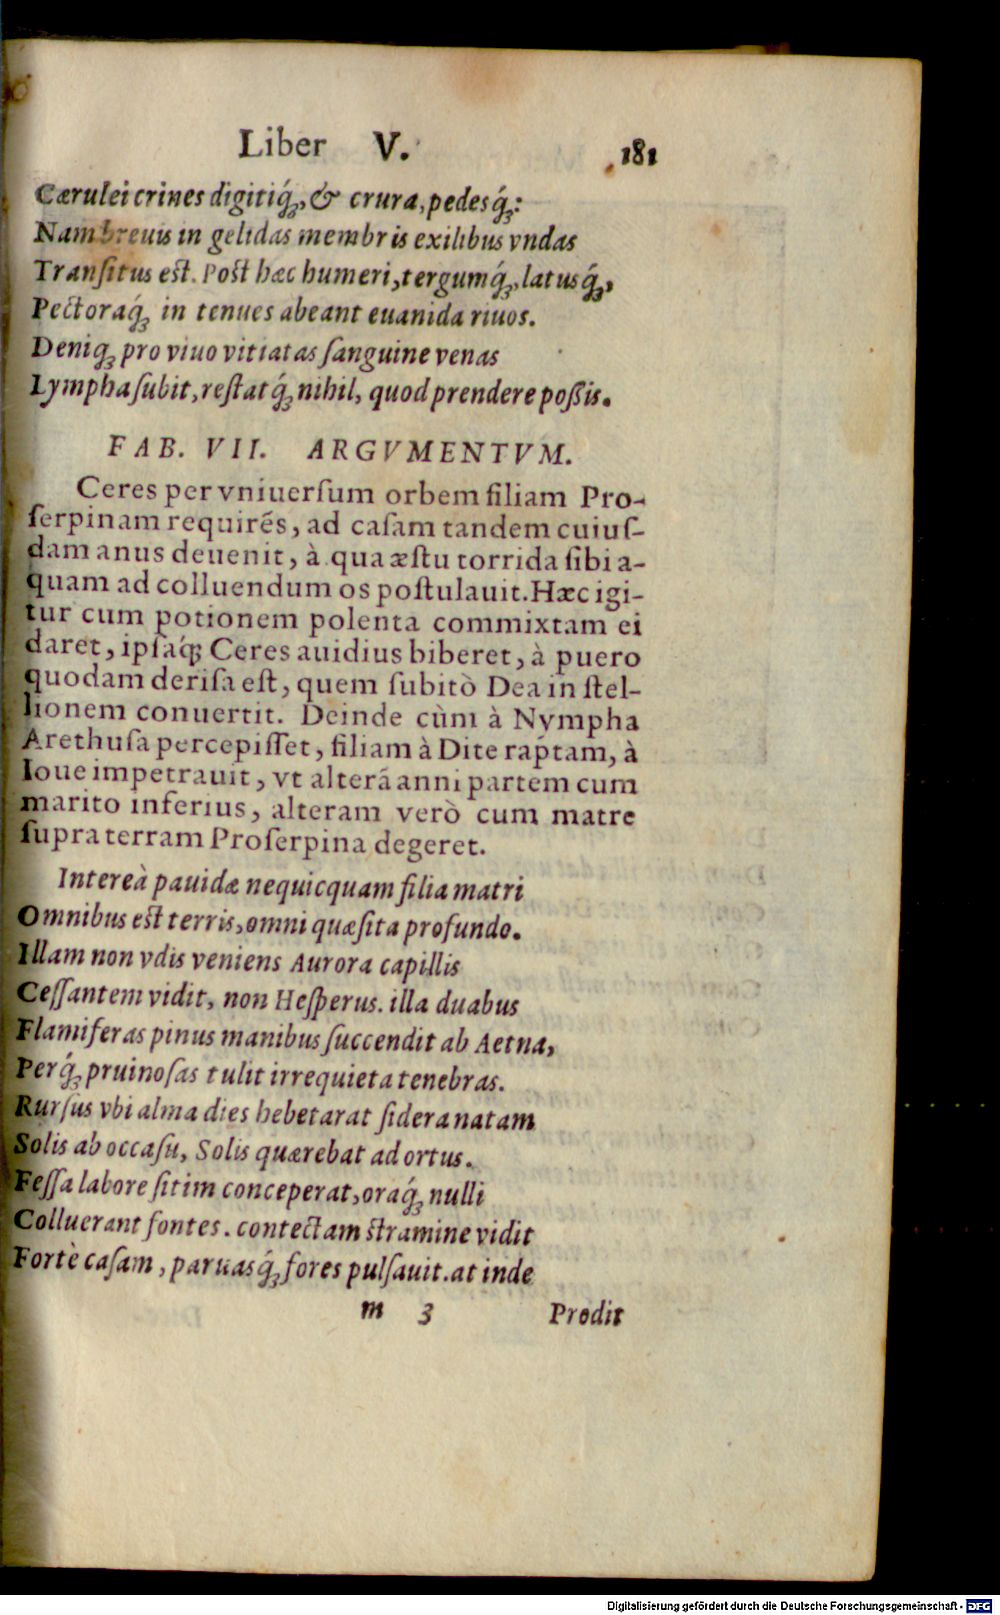 Liber V. 181
Cærulei crines digitiq́;, & crura, pedesq́;:
Nam breuis in gelidas membris exilibus vndas
Tranſitus est. Post hæc humeri, tergumq́;, latusq́;,
Pectoraq́; in tenues abeant euanida riuos.
Deniq; pro viuo vitiatas ſanguine venas
Lympha ſubit, reſtatq́; nihil, quod prendere poßis.
FAB. VII. ARGVMENTVM.
Ceres per vniuerſum orbem filiam Pro-
ſerpinam requirẽs, ad caſam tandem cuiuſ-
dam anus deuenit, à qua æſtu torrida ſibi a-
quam ad colluendum os poſtulauit. Hæc igi-
tur cum potionem polenta commixtam ei
daret, ipſaq́; Ceres auidius biberet, à puero
quodam deriſa eſt, quem ſubitò Dea in ſtel-
lionem conuertit. Deinde cùm à Nympha
Arethuſa percepiſſet, filiam à Dite raptam, à
Ioue impetrauit, vt alterã anni partem cum
marito inferius, alteram verò cum matre
ſupra terram Proſerpina degeret.
Intereà pauidæ nequicquam filia matri
Omnibus est terris, omni quæſita profundo.
Illam non vdis veniens Aurora capillis
Ceſſantem vidit, non Heſperus. illa duabus
Flamiferas pinus manibus ſuccendit ab Aetna,
Perq́; pruinoſas tulit irrequieta tenebras.
Rurſus vbi alma dies hebetarat ſidera natam
Solis ab occaſu, Solis quærebat ad ortus.
Feſſa labore ſitim conceperat, oraq́; nulli
Colluerant fontes. contectam stramine vidit
Fortè caſam, paruasq́; fores pulſauit. at inde
m 3 Prodit
Digitalisierung gefördert durch die Deutsche Forschungsgemeinschaft - DFG